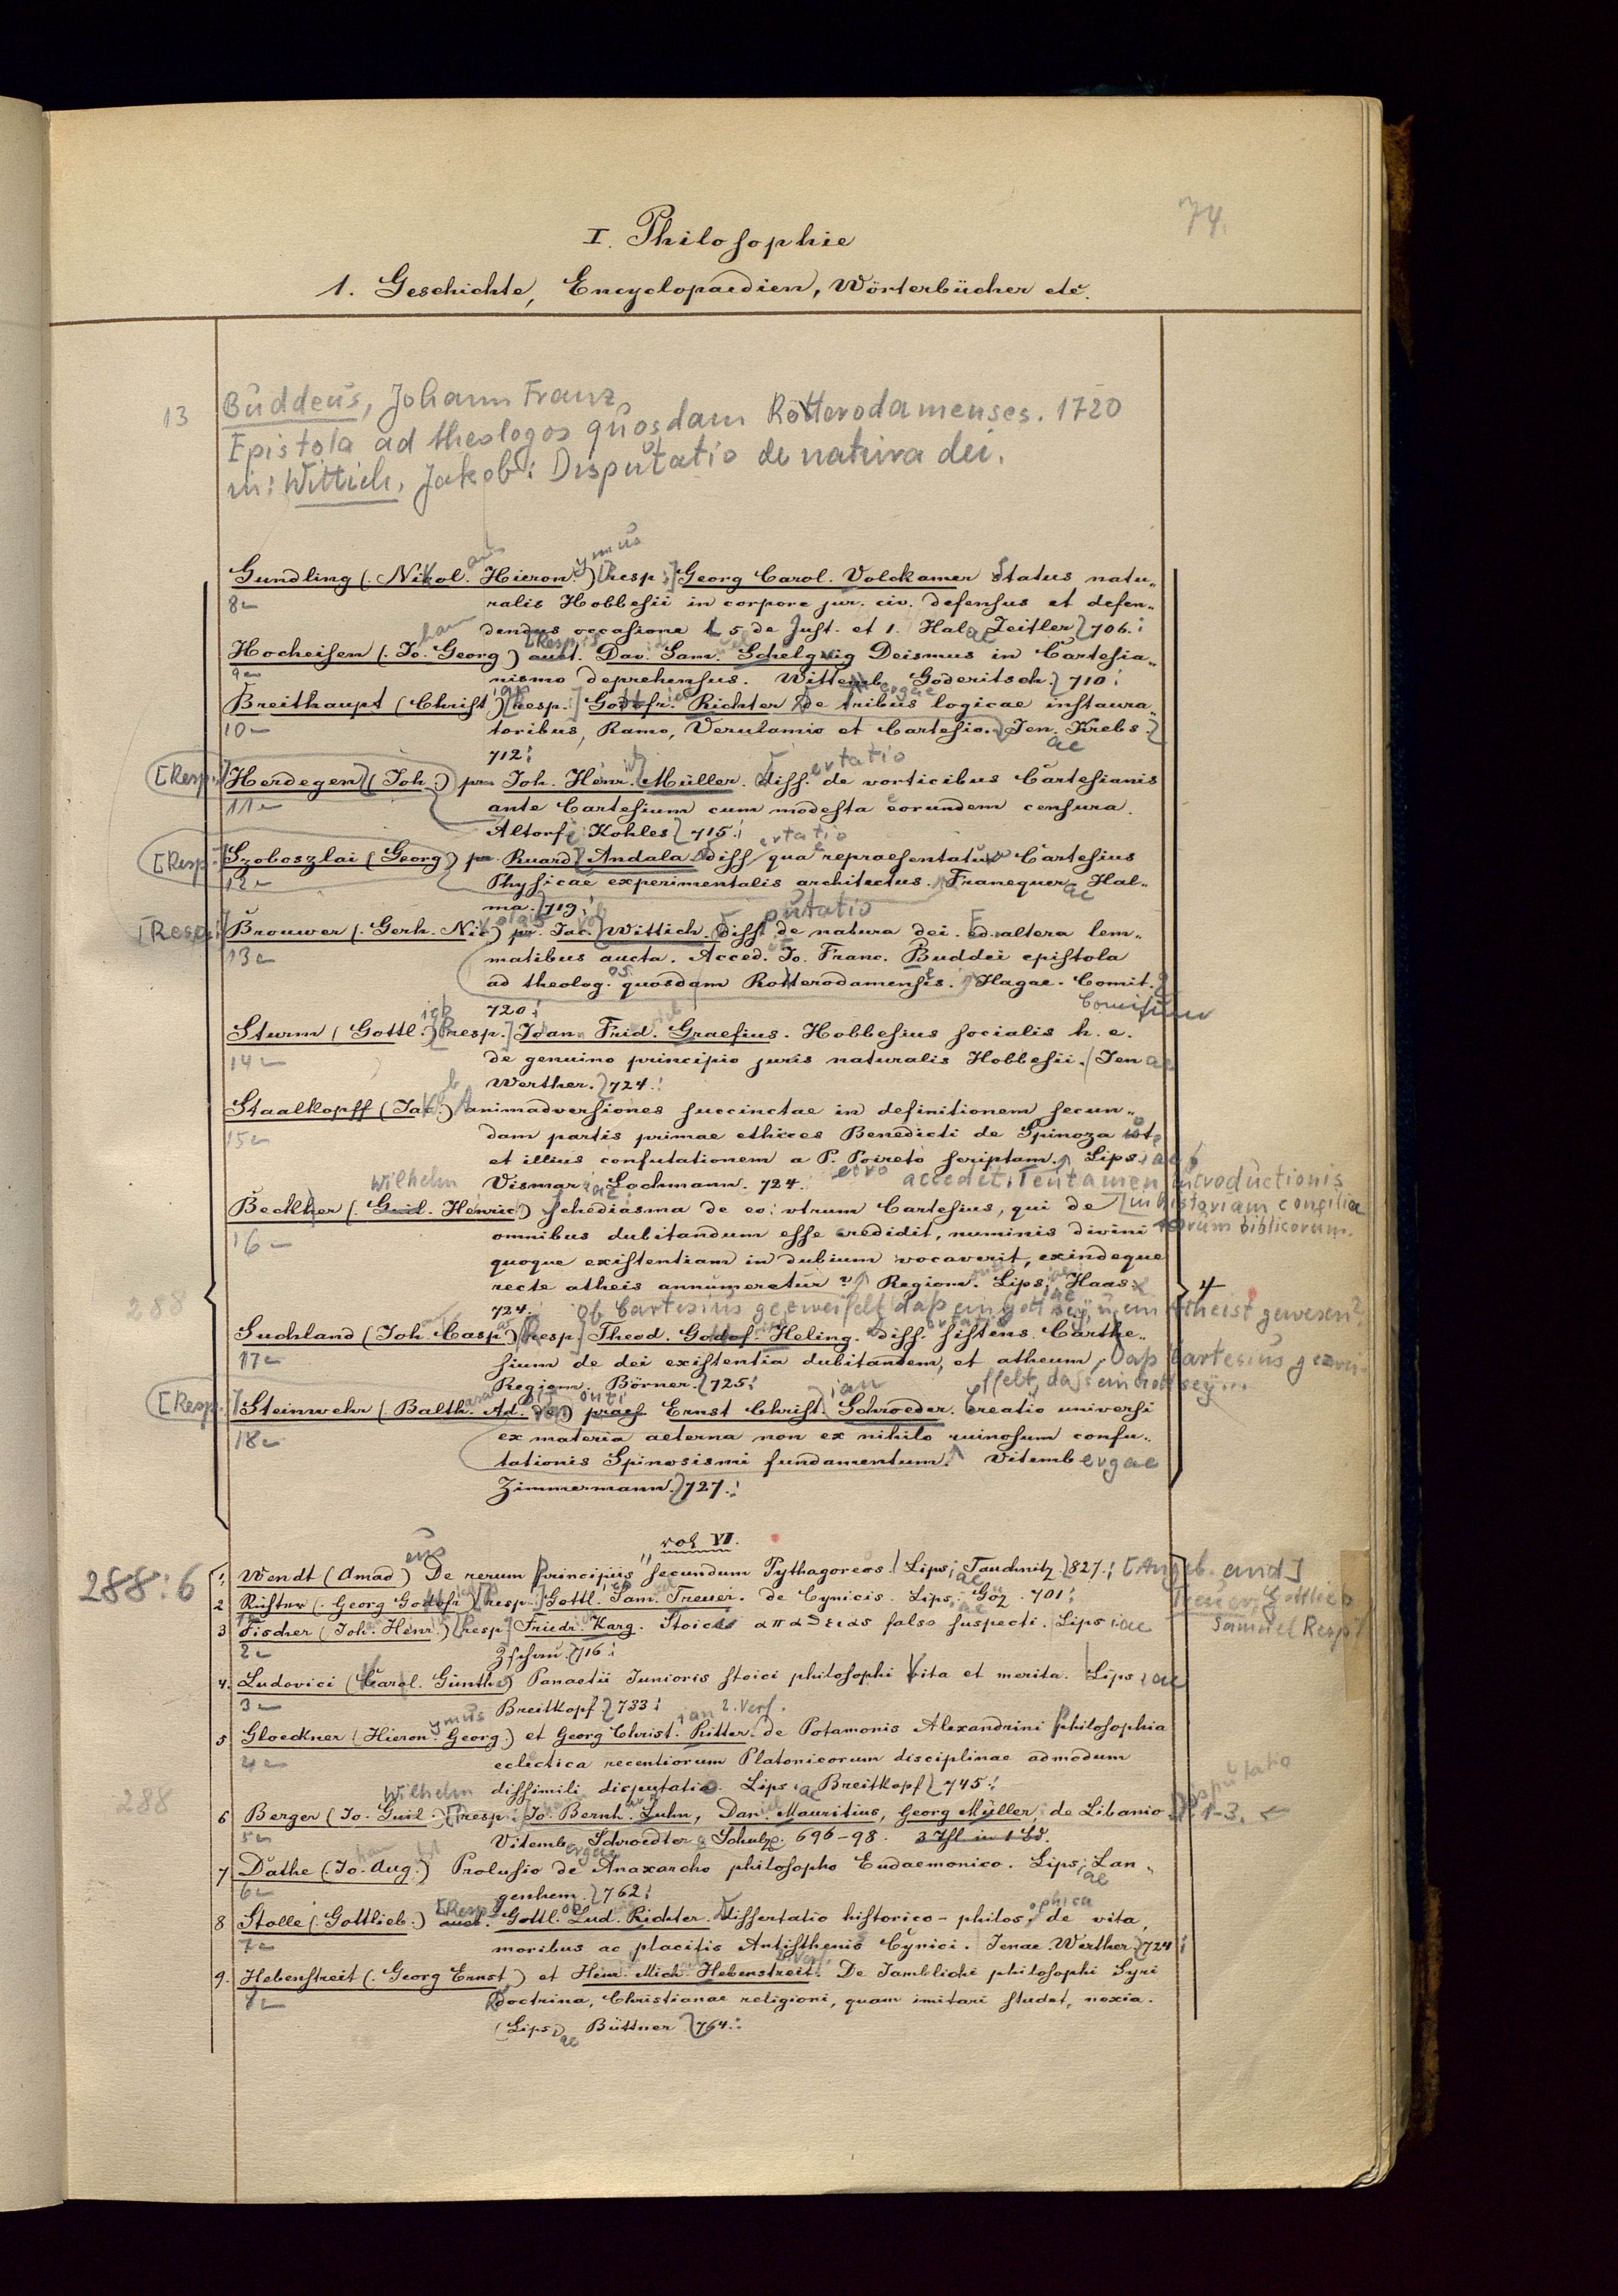 74.
I. Philosophie
1. Geschichte, Encyclopaedien, Wörterbücher etc.
13 Buddeus, Johann Franz
Epistola ad theologos quosdam Rotterodamenses. 1720
in: Wittich, Jakob: Disputatio de natura dei.
Gundling (Nikol. Hieron.) [resp.] Georg Carol. Volckamer Status natu-
8 ralis Hobbesii in corpore jur. civ. defensus et defen-
dendus occasione L 5 de Just. et 1. Halae Zeitler 706.
Hocheisen (Jo. Georg) auct. Dav. Sam. Schelgvig Deismus in Cartesia-
9 nismo deprehensus. Wittemb Goderitsch. 710
Breithaupt (Christ.) [resp.] Gottfr. Richter de tribus logicae instaura-
10 toribus, Ramo, Verulamio et Cartesio. Jenae Krebs
712
[Resp.] Herdegen (Joh.) pr. Joh. Henr. Müller. Dissertatio de vorticibus Cartesianis
11 ante Cartesium cum modesta eorundem censura.
Altorf Kohles 715
[Resp.] Szoboszlai (Georg) pr. Ruard Andala Dissertatio qua repraesentatur Cartesius
12 Physicae experimentalis architectus. Franequerae Hal-
ma. 719
[Resp.] Brouwer (Gerh. Nic) pr. Jac. Wittich. Disputatio de natura dei. Ed. altera lem-
13 matibus aucta. Acced. Jo. Franc. Buddei epistola
ad theolog. quosdam Rotterodamensis. Hagae. Comit.
720
Sturm (Gottl.) [resp.] Joan Frid. Graefius. Hobbesius socialis h. e.
14 de genuino principio juris naturalis Hobbesii. Jenae
Werther. 724
Staalkopff (Jac.) Animadversiones succinctae in definitionem secun-
15 dam partis primae ethices Benedicti de Spinoza
et illius confutationem a P. Poireto scriptam. Lipsiae
Vismariae Lochmann. 724. accedit: Tentamen introductionis
in historiam concilia
torum biblicorum.
Wilhelm
Beckher (Guil. Henric) Schediasma de eo: utrum Cartesius, qui de
16 omnibus dubitandum esse credidit, numinis divini
quoque existentiam in dubium vocaverit, exindeque
recte atheis annumeretur? Regiom. Lips. Haas
288 4
724. Ob Cartesius gezweifelt daß ein Gott sey, u. ein Atheist gewesen?
Suchland (Joh. Casp.) [resp.] Theod. Godof. Heling. Diss. sistens. Carthe-
17 sium de dei existentia dubitantem, et atheum, Daß Cartesius gezwei-
Regiom. Börner. 725 felt, daß ein Gott sey...
[Resp.] Steinwehr (Balth. Ad. de) praes Ernst Christ. Schroeder. Creatio universi
18 ex materia aeterna non ex nihilo ruinosum confu-
tationis Spinosismi fundamentum. Vitembergae
Zimmermann. 727.
vol VI.
288:6 1. Wendt (Amad) De rerum principiis secundum Pythagoreos. Lips. Tauchnitz. 827. [Angeb. and]
2 Richter (Georg Godofr) [resp.] Gottl. Sam. Treuer. de Cynicis. Lips. Göz. 701
Treuer, Gottlieb
Samuel Resp
3 Fischer (Joh. Henr.) [resp.] Friedr. Karg. Stoici απαθειας falso suspecti. Lipsiae
2 Zschau. 716
4. Ludovici (Carol. Günther) Panaetii Junioris stoici philosophi vita et merita. Lipsiae
3 Breitkopf. 733
2. Verf.
5 Gloeckner (Hieron. Georg.) et Georg Christ. Ritter. de Potamonis Alexandrini philosophia
4 eclectica recentiorum Platonicorum disciplinae admodum
dissimili disputatio. Lipsiae Breitkopf 745.
288 Wilhelm
6 Berger (Jo. Guil.) [resp. Jo. Bernh. Luhn, Dan. Mauritius, Georg Müller de Libanio Disputatio 1-3.
5 Vitemb. Schroedter & Schulze. 696-98. 3 Thl in 1 Bd.
7 Dathe (Jo. Aug.) Prolusio de Anaxarcho philosopho Eudaemonico. Lips. Lan-
6 genhem. 762
8 Stolle (Gottlieb.) auct. Gottl. Lud. Richter. Dissertatio historico-philos. de vita,
7 moribus ac placitis Antisthenis Cynici. Jenae. Werther. 724
9. Hebenstreit (Georg Ernst) et Henr. Mich. Hebenstreit. De Jamblichi philosophi Syri
8 doctrina, Christianae religioni, quam imitari studet, noxia.
(Lipsiae Büttner 764.